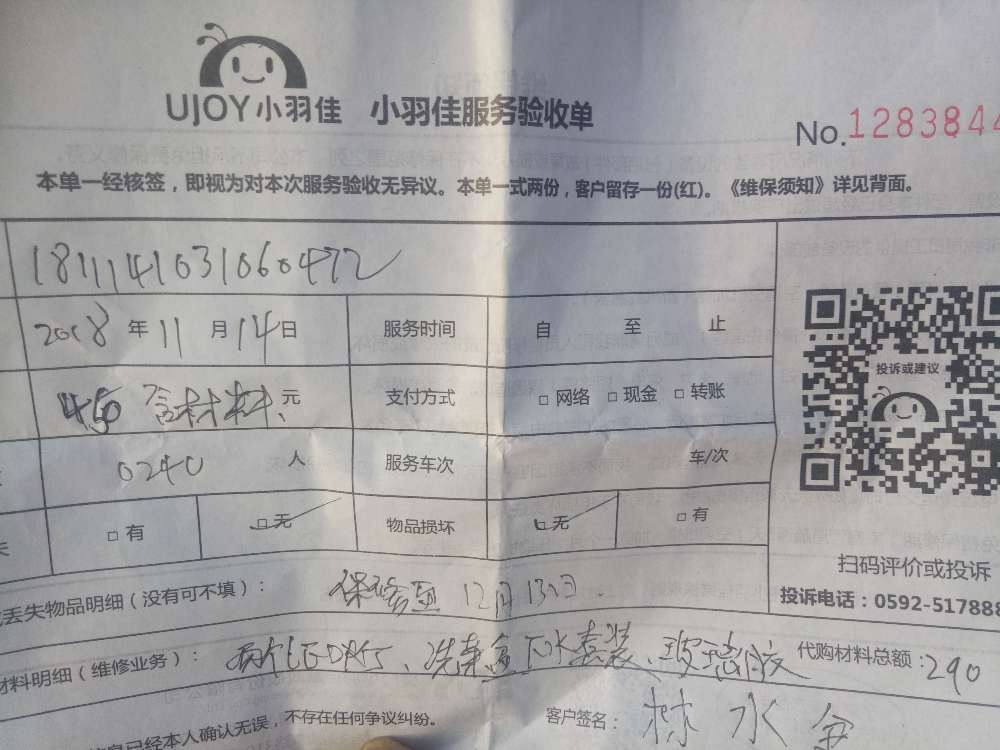 UJOY小羽佳 小羽佳服务验收单
No.1283844
本单一经核签，即视为对本次服务验收无异议。本单一式两份，客户留存一份(红)。《维保须知》详见背面。
1811141031060472
2018年11月14日 服务时间 自 至 止
450含材料、元 支付方式 □网络 □现金 □转账
0240 人 服务车次 车/次
□有 □无 物品损坏 □无 □有
投诉或建议
扫码评价或投诉
投诉电话：0592-517888
丢失物品明细（没有可不填）： 保修至12月13日.
材料明细（维修业务）： 两个LED灯、洗菜盆下水套装、玻璃胶 代购材料总额：290
已经本人确认无误，不存在任何争议纠纷。 客户签名：林水